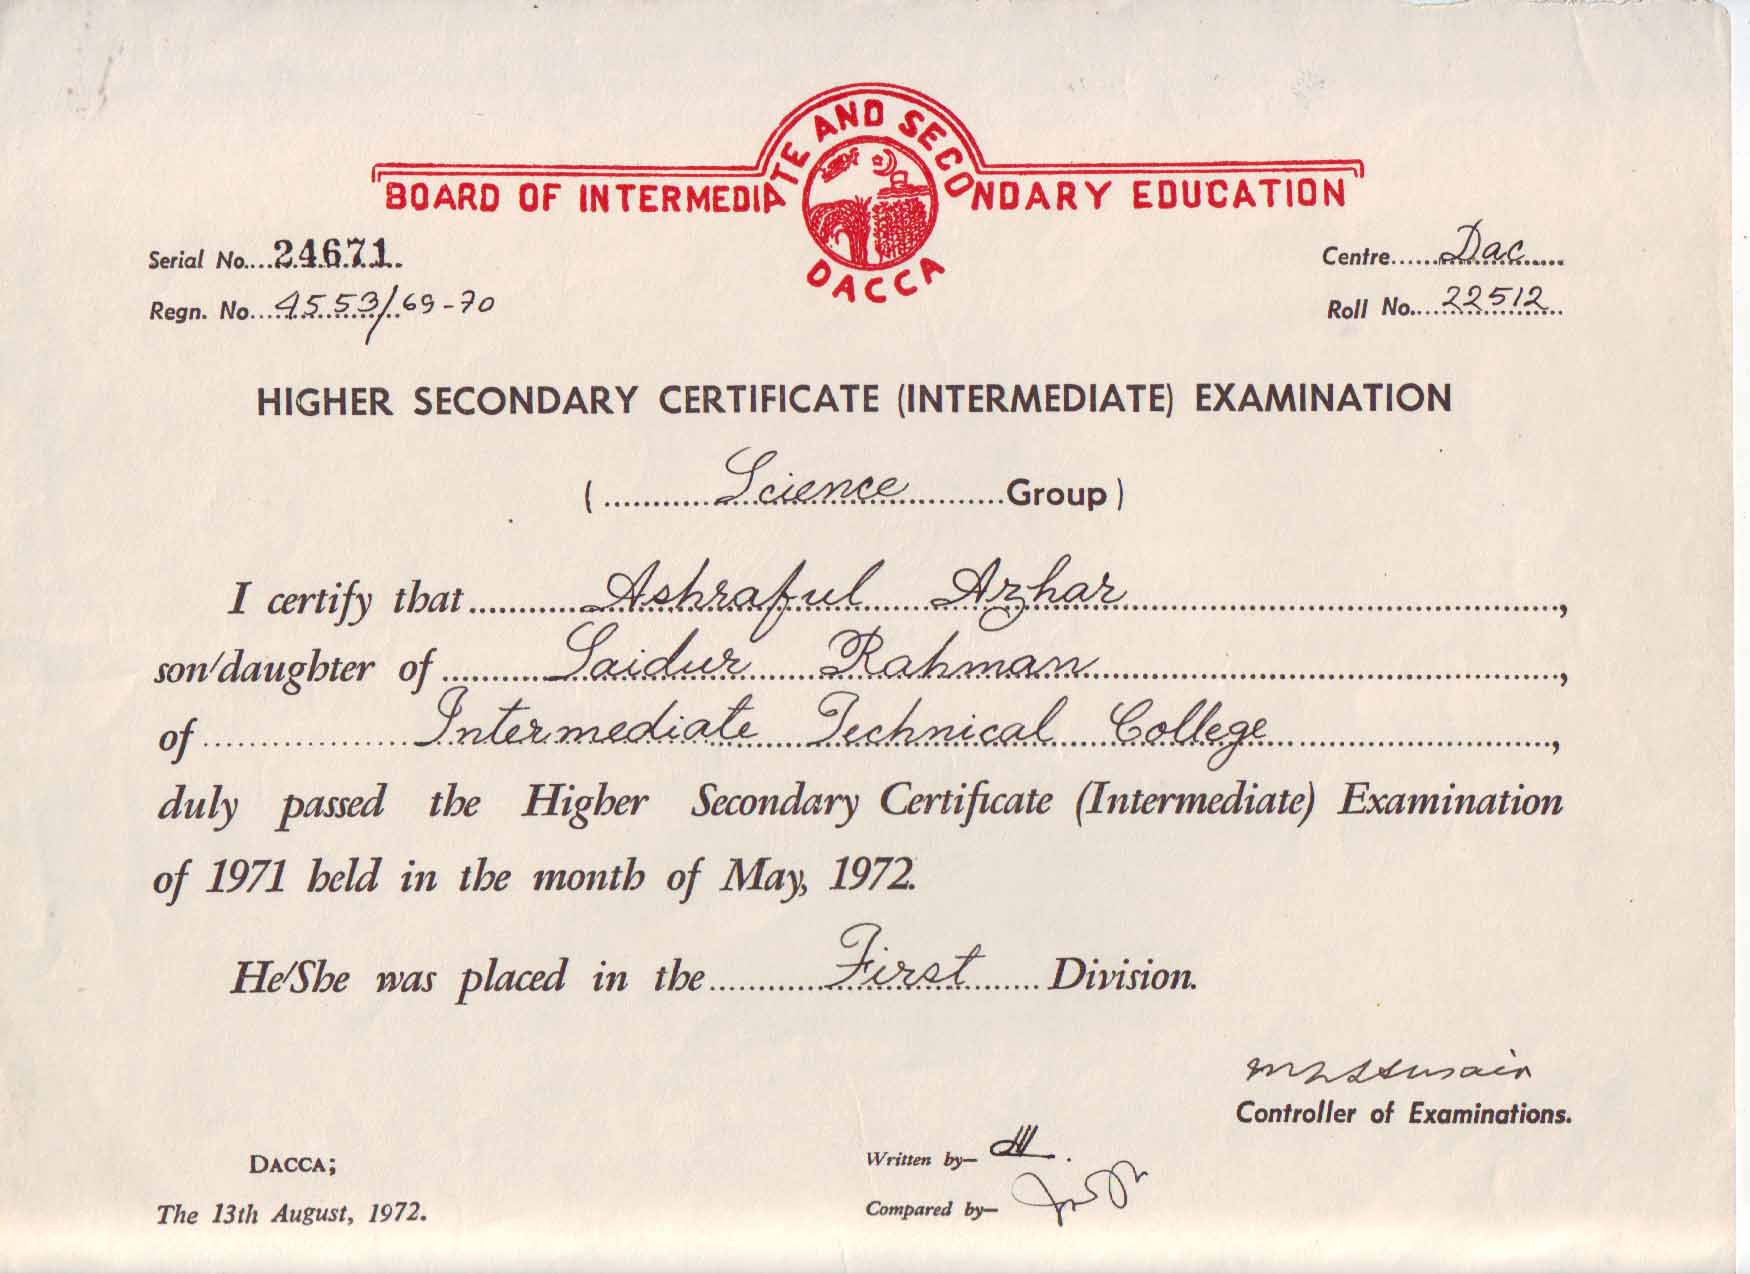 BOARD OF INTERMEDIATE AND SECONDARY EDUCATION
DACCA
Serial No....24671.
Centre......Dac......
Regn. No....4553/69-70
Roll No.....22512..
HIGHER SECONDARY CERTIFICATE (INTERMEDIATE) EXAMINATION
(...........Science...........Group)
I certify that...........Ashraful Azhar...........,
son/daughter of...........Saidur Rahman...........,
of...........Intermediate Technical College...........,
duly passed the Higher Secondary Certificate (Intermediate) Examination
of 1971 held in the month of May, 1972.
He/She was placed in the...........First...........Division.
Controller of Examinations.
DACCA;
Written by—
The 13th August, 1972.
Compared by—